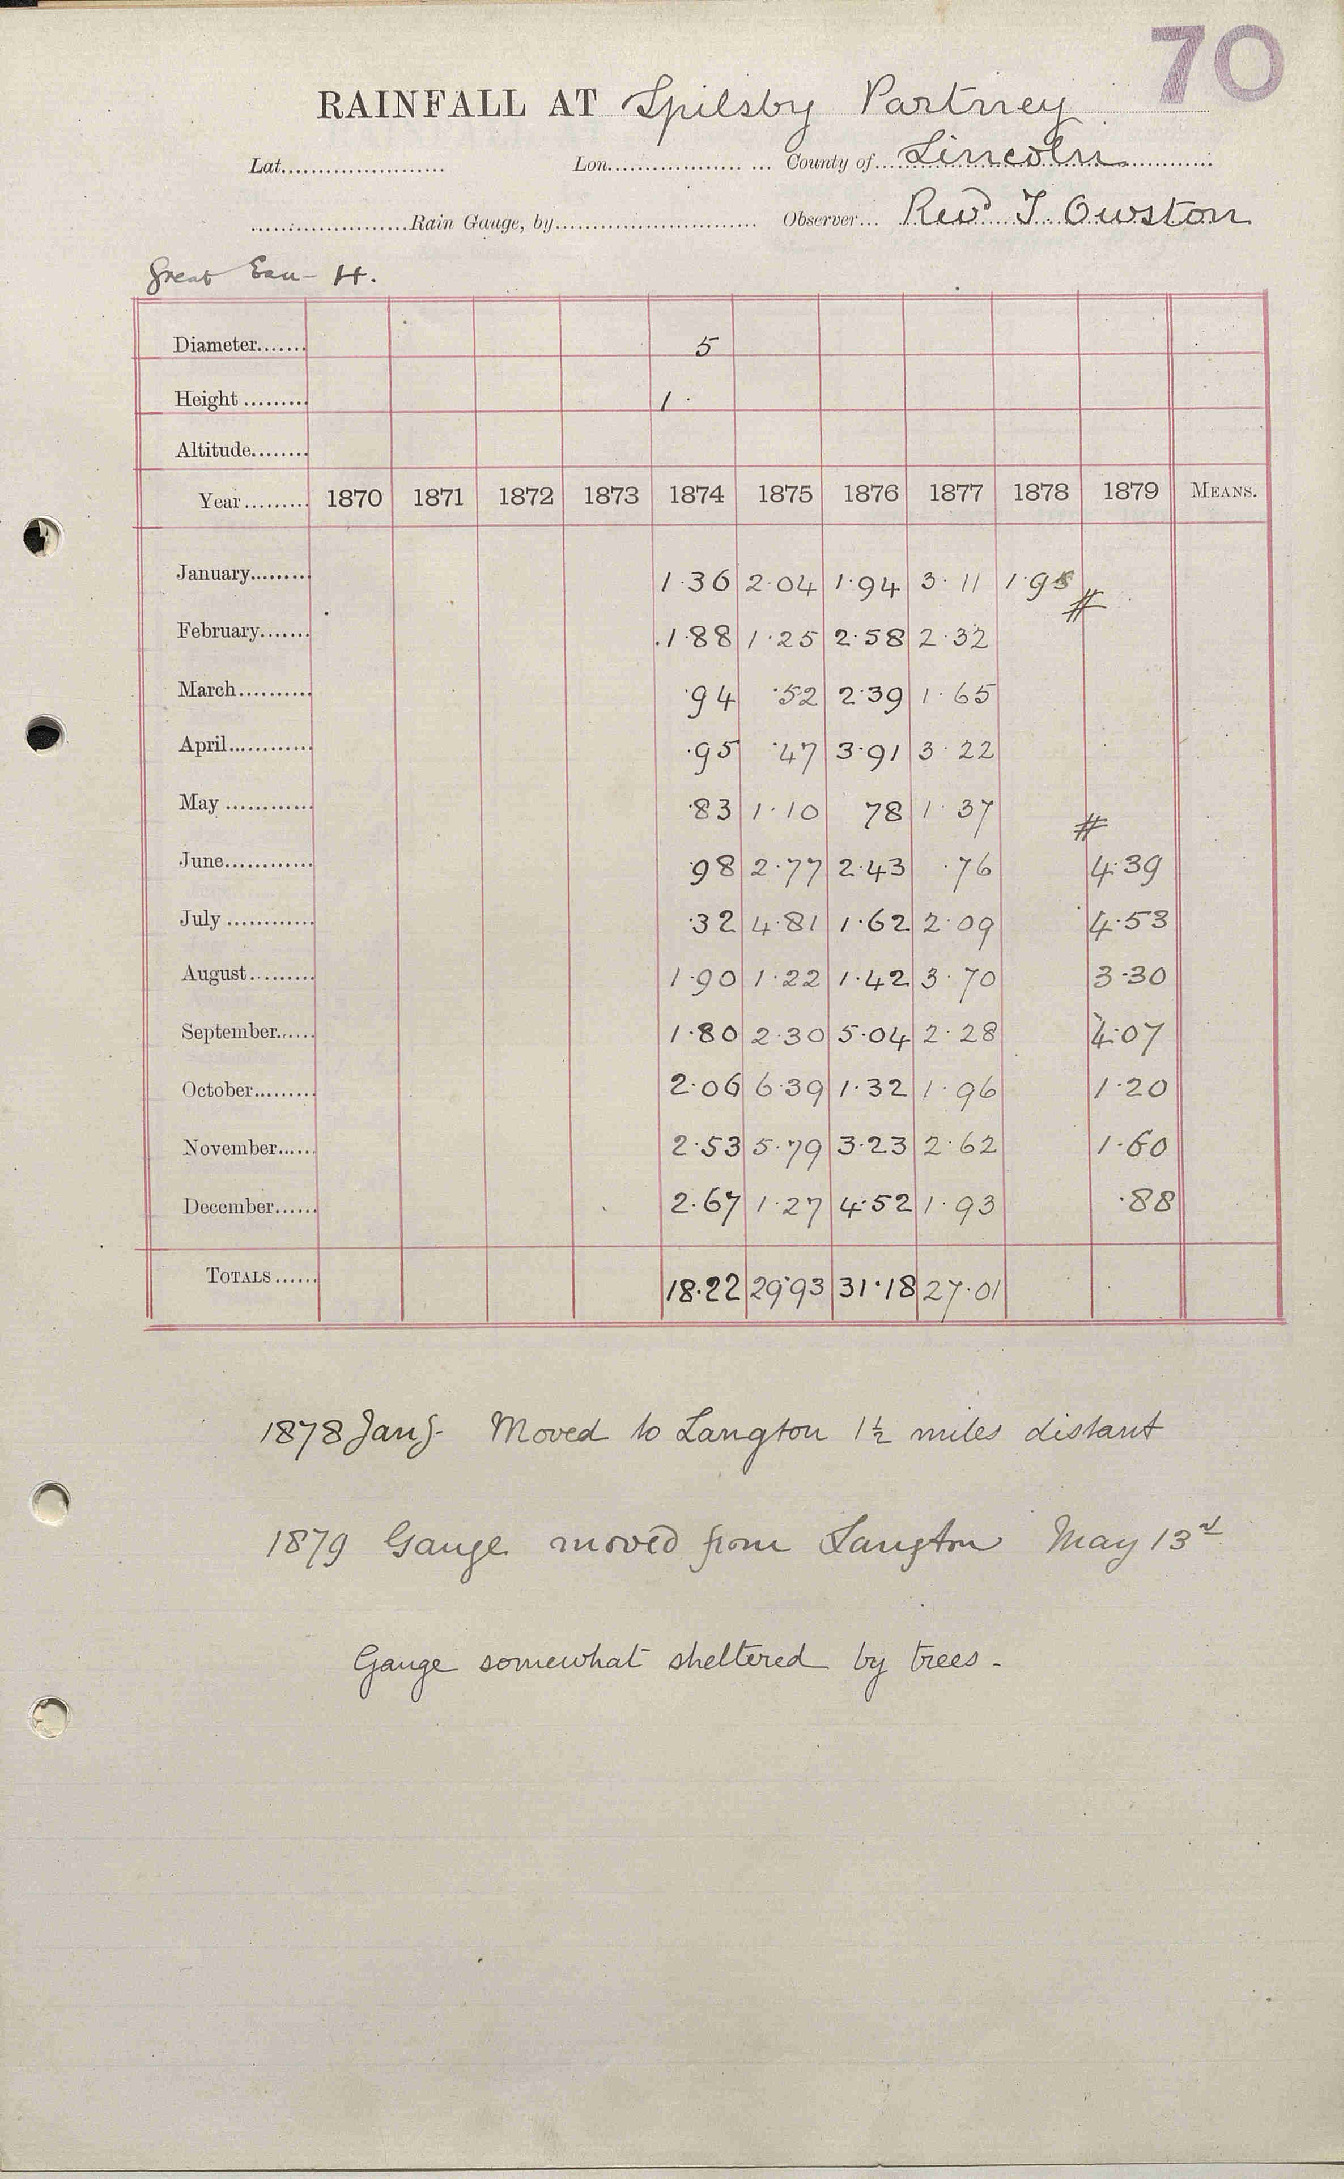 70
RAINFALL AT Spilsby Partney
Lat...................... Lon..................... County of Lincoln
.....................Rain Gauge, by............................ Observer... Revd T Owston
Great Eau - H.
Diameter....... 5
Height ......... 1 ·
Altitude........
Year......... 1870 1871 1872 1873 1874 1875 1876 1877 1878 1879 MEANS.
January......... 1·36 2·04 1·94 3·11 1·95 #
February....... 1·88 1·25 2·58 2·32
March.......... ·94 ·52 2·39 1·65
April............ ·95 ·47 3·91 3·22
May ............ ·83 1·10 78 1·37 #
June............ ·98 2·77 2·43 ·76 4·39
July ............ ·32 4·81 1·62 2·09 4·53
August......... 1·90 1·22 1·42 3·70 3·30
September...... 1·80 2·30 5·04 2·28 4·07
October......... 2·06 6·39 1·32 1·96 1·20
November...... 2·53 5·79 3·23 2·62 1·60
December...... 2·67 1·27 4·52 1·93 ·88
TOTALS...... 18·22 29·93 31·18 27·01
1878 Jany. Moved to Langton 1½ miles distant
1879 Gauge moved from Langton May 13th
Gauge somewhat sheltered by trees -